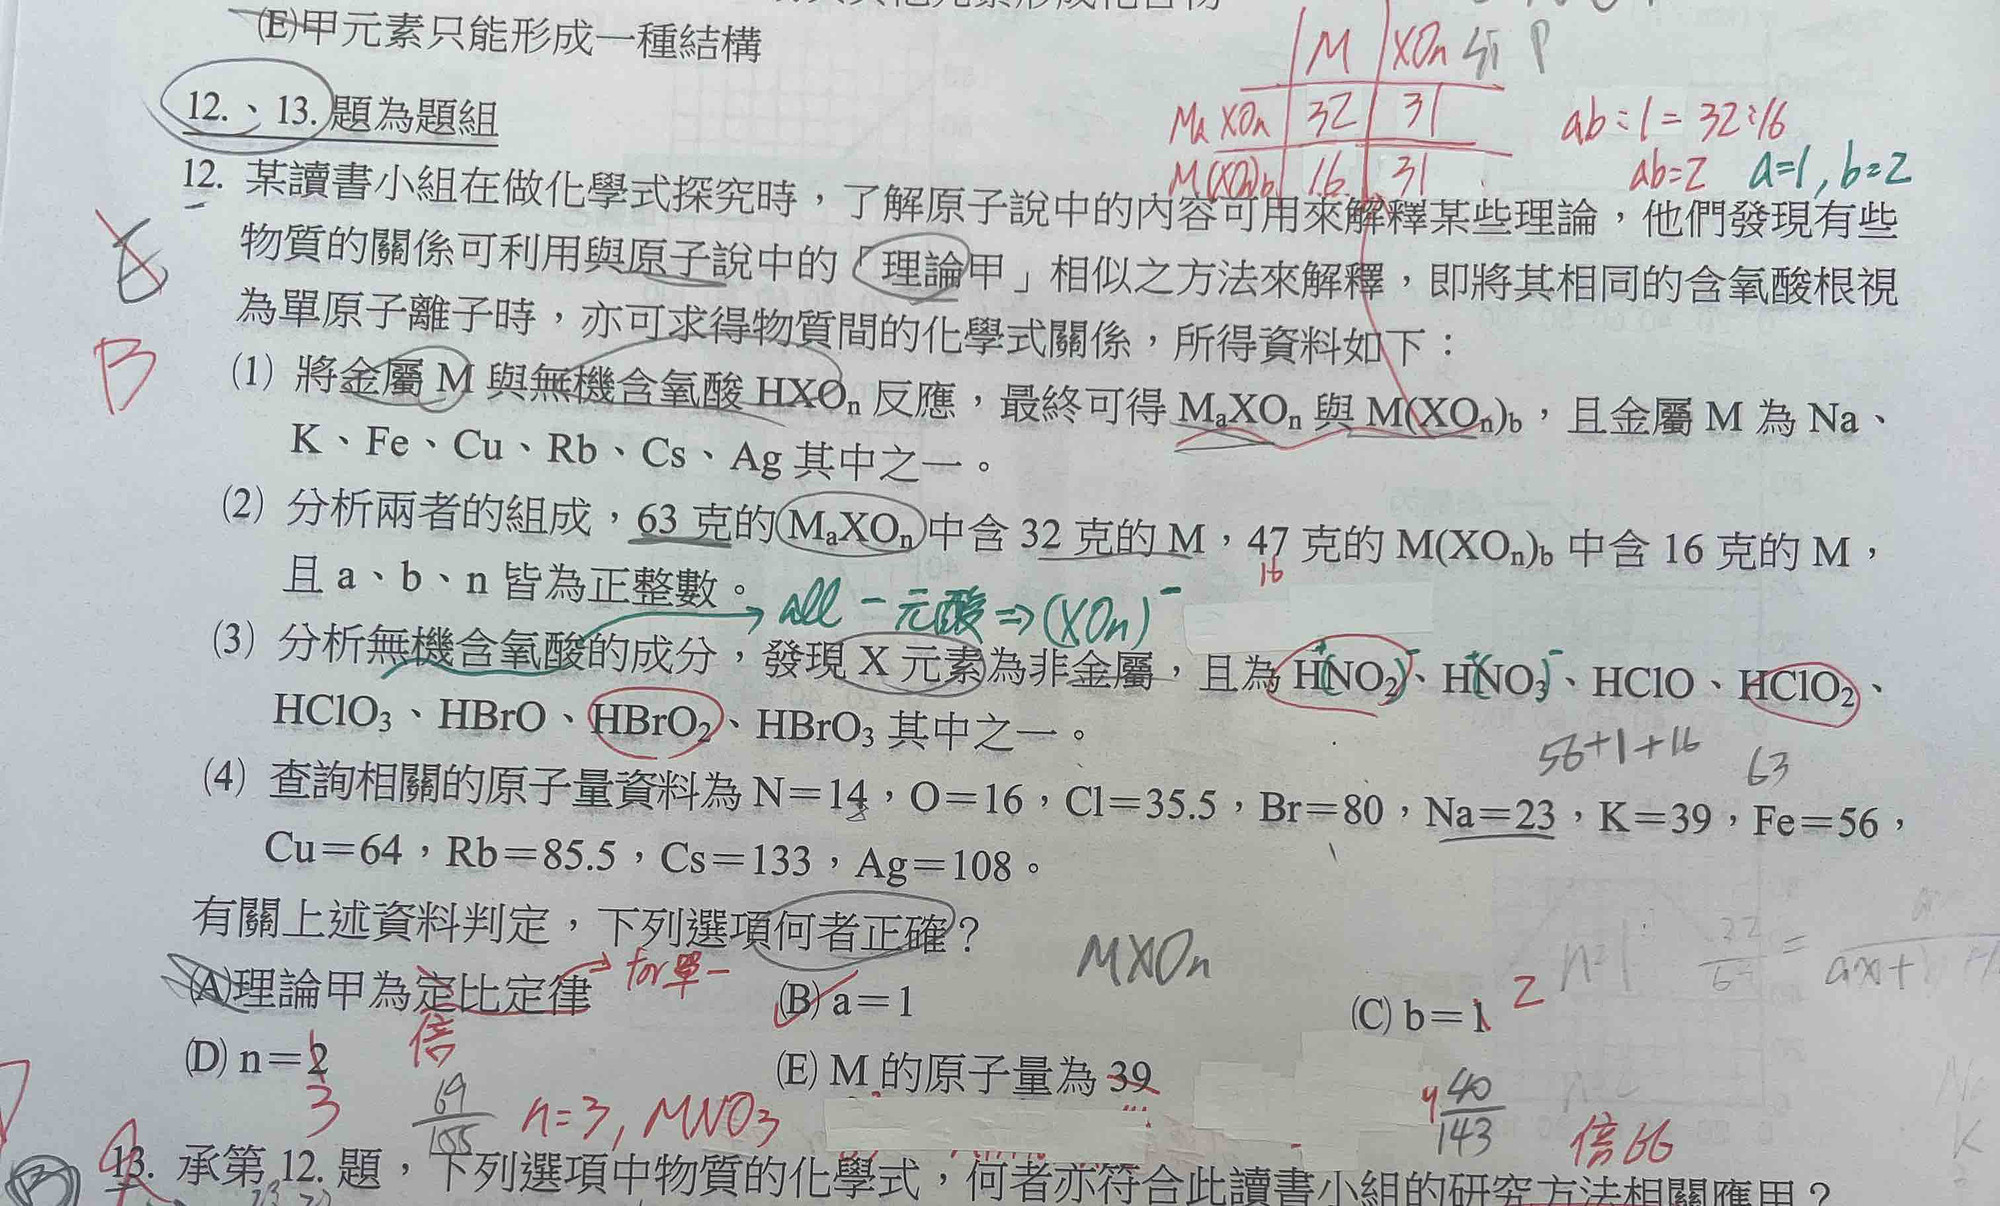 (E)甲元素只能形成一種結構
M XOn Si P
12.、13.題為題組
MaXOn 32 31
ab:1=32:16
M(XOn)b 16 31
ab=2 a=1, b=2
12. 某讀書小組在做化學式探究時，了解原子說中的內容可用來解釋某些理論，他們發現有些
物質的關係可利用與原子說中的「理論甲」相似之方法來解釋，即將其相同的含氧酸根視
為單原子離子時，亦可求得物質間的化學式關係，所得資料如下：
B
(1) 將金屬 M 與無機含氧酸 HXOn 反應，最終可得 MaXOn 與 M(XOn)b，且金屬 M 為 Na、
K、Fe、Cu、Rb、Cs、Ag 其中之一。
(2) 分析兩者的組成，63 克的 MaXOn 中含 32 克的 M，47 克的 M(XOn)b 中含 16 克的 M，
16
且 a、b、n 皆為正整數。
all 一元酸⇒(XOn)⁻
(3) 分析無機含氧酸的成分，發現 X 元素為非金屬，且為 HNO2、HNO3、HClO、HClO2、
HClO3、HBrO、HBrO2、HBrO3 其中之一。
56+1+16 63
(4) 查詢相關的原子量資料為 N＝14，O＝16，Cl＝35.5，Br＝80，Na＝23，K＝39，Fe＝56，
Cu＝64，Rb＝85.5，Cs＝133，Ag＝108。
有關上述資料判定，下列選項何者正確？
MXOn
(A)理論甲為定比定律 for單一 (B) a＝1 (C) b＝1 2
倍
(D) n＝2 (E) M 的原子量為 39
3 64/155 n=3, MNO3 40/143 倍bb
13. 承第 12. 題，下列選項中物質的化學式，何者亦符合此讀書小組的研究方法相關應用？